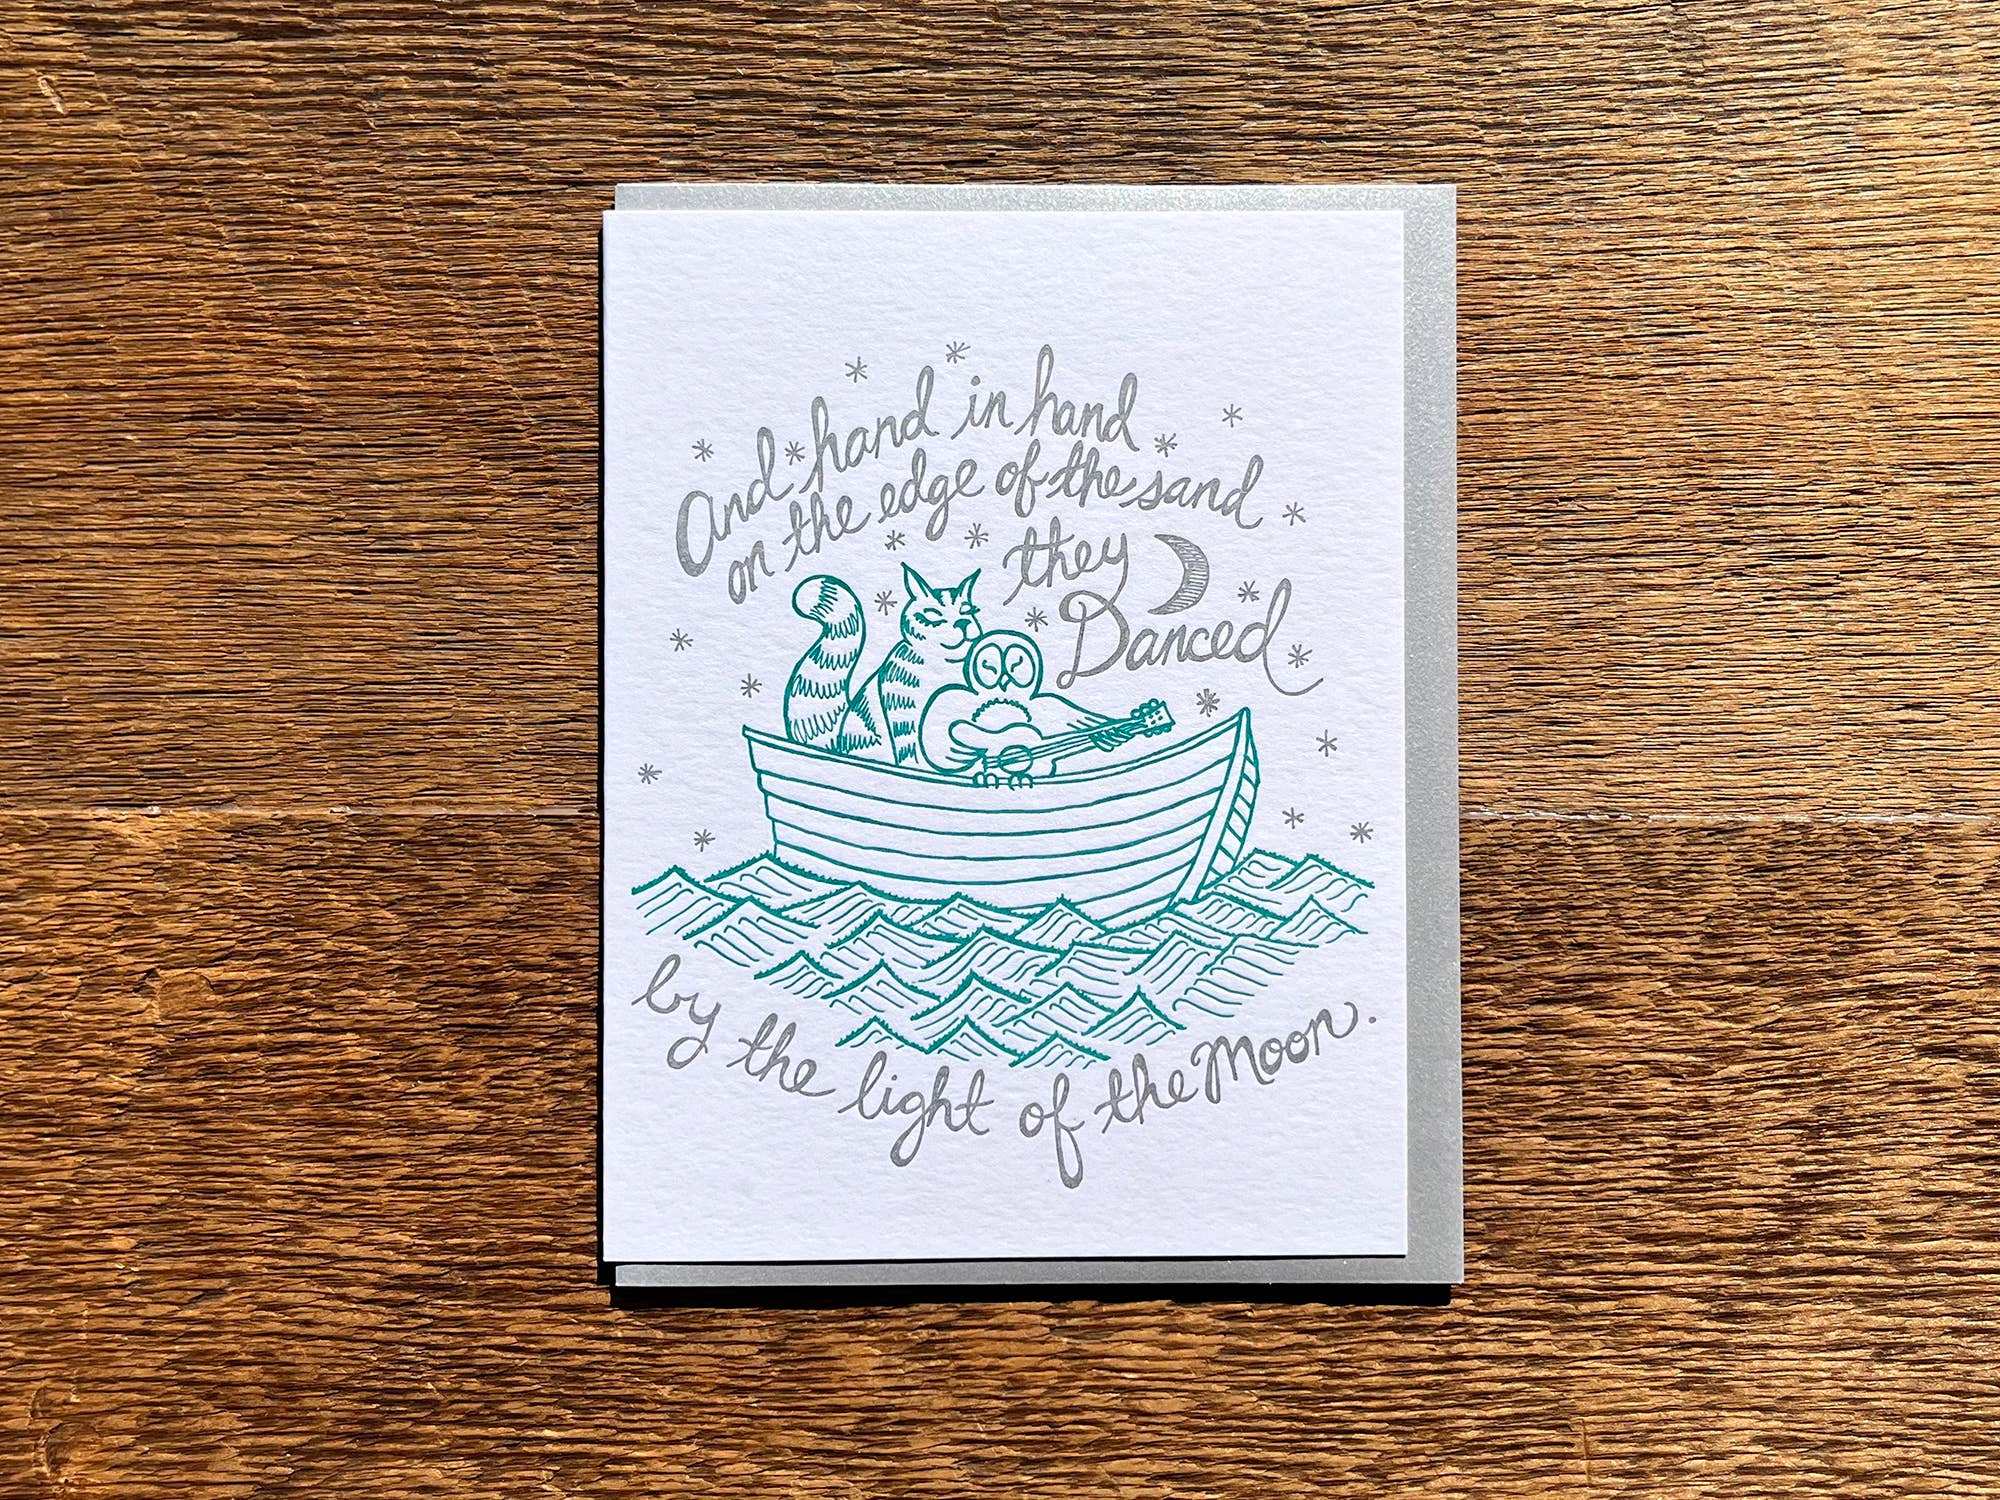 And hand in hand
on the edge of the sand
they
Danced
by the light of the Moon.